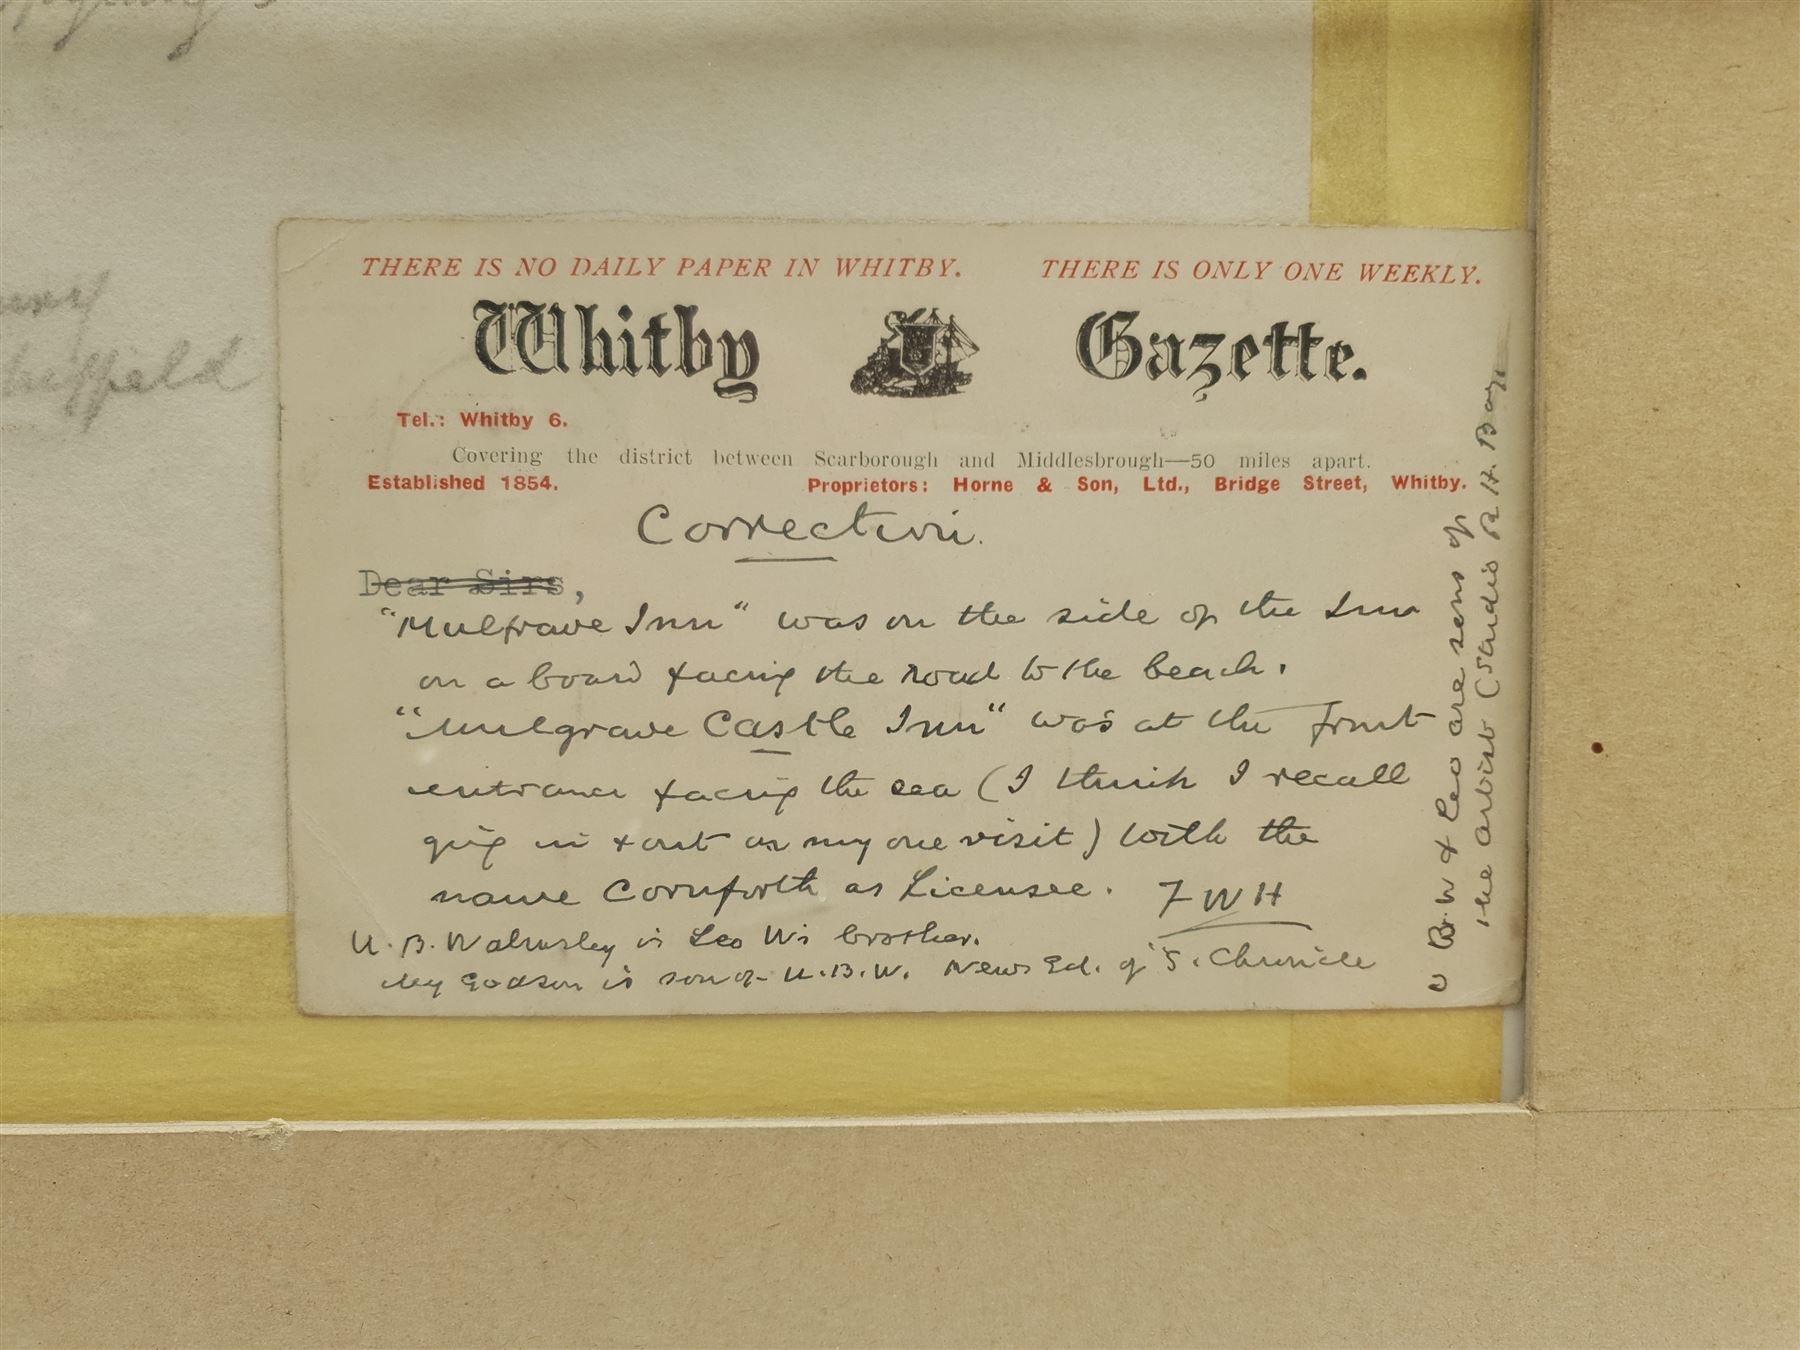 THERE IS NO DAILY PAPER IN WHITBY. THERE IS ONLY ONE WEEKLY.
Whitby Gazette.
Tel.: Whitby 6.
Covering the district between Scarborough and Middlesbrough—50 miles apart.
Established 1854. Proprietors: Horne & Son, Ltd., Bridge Street, Whitby.
Correction.
Dear Sirs,
"Mulgrave Inn" was on the side of the Inn
on a board facing the road to the beach.
"Mulgrave Castle Inn" was at the front
entrance facing the sea (I think I recall
going in & out on my one visit) with the
name Cornforth as Licensee. FWH
U.B. Walmsley is Leo W's brother.
My Godson is son of U.B.W. News Ed. of S. Chronicle
U B.W & Leo are sons of
the artist (Studio R.H. Bay